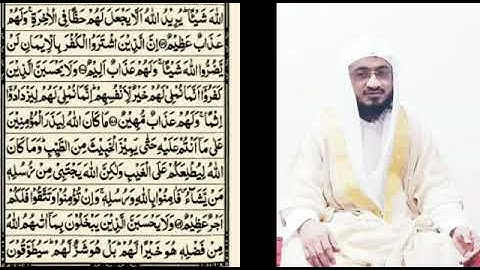 اللهَ شَيْئًا ؕ يُرِيْدُ اللهُ اَلَّا يَجْعَلَ لَهُمْ حَظًّا فِي الْاٰخِرَةِ ۚ وَلَهُمْ
عَذَابٌ عَظِيْمٌ ۝ اِنَّ الَّذِيْنَ اشْتَرَوُا الْكُفْرَ بِالْاِيْمَانِ لَنْ
يَّضُرُّوا اللهَ شَيْئًا ۚ وَلَهُمْ عَذَابٌ اَلِيْمٌ ۝ وَلَا يَحْسَبَنَّ الَّذِيْنَ
كَفَرُوْۤا اَنَّمَا نُمْلِيْ لَهُمْ خَيْرٌ لِّاَنْفُسِهِمْ ؕ اِنَّمَا نُمْلِيْ لَهُمْ لِيَزْدَادُوْۤا
اِثْمًا ۚ وَلَهُمْ عَذَابٌ مُّهِيْنٌ ۝ مَا كَانَ اللهُ لِيَذَرَ الْمُؤْمِنِيْنَ
عَلٰى مَاۤ اَنْتُمْ عَلَيْهِ حَتّٰى يَمِيْزَ الْخَبِيْثَ مِنَ الطَّيِّبِ ؕ وَمَا كَانَ
اللهُ لِيُطْلِعَكُمْ عَلَى الْغَيْبِ وَلٰكِنَّ اللهَ يَجْتَبِيْ مِنْ رُّسُلِهٖ
مَنْ يَّشَآءُ ۪ فَاٰمِنُوْا بِاللهِ وَرُسُلِهٖ ۚ وَاِنْ تُؤْمِنُوْا وَتَتَّقُوْا فَلَكُمْ
اَجْرٌ عَظِيْمٌ ۝ وَلَا يَحْسَبَنَّ الَّذِيْنَ يَبْخَلُوْنَ بِمَاۤ اٰتٰىهُمُ اللهُ
مِنْ فَضْلِهٖ هُوَ خَيْرًا لَّهُمْ ؕ بَلْ هُوَ شَرٌّ لَّهُمْ ؕ سَيُطَوَّقُوْنَ